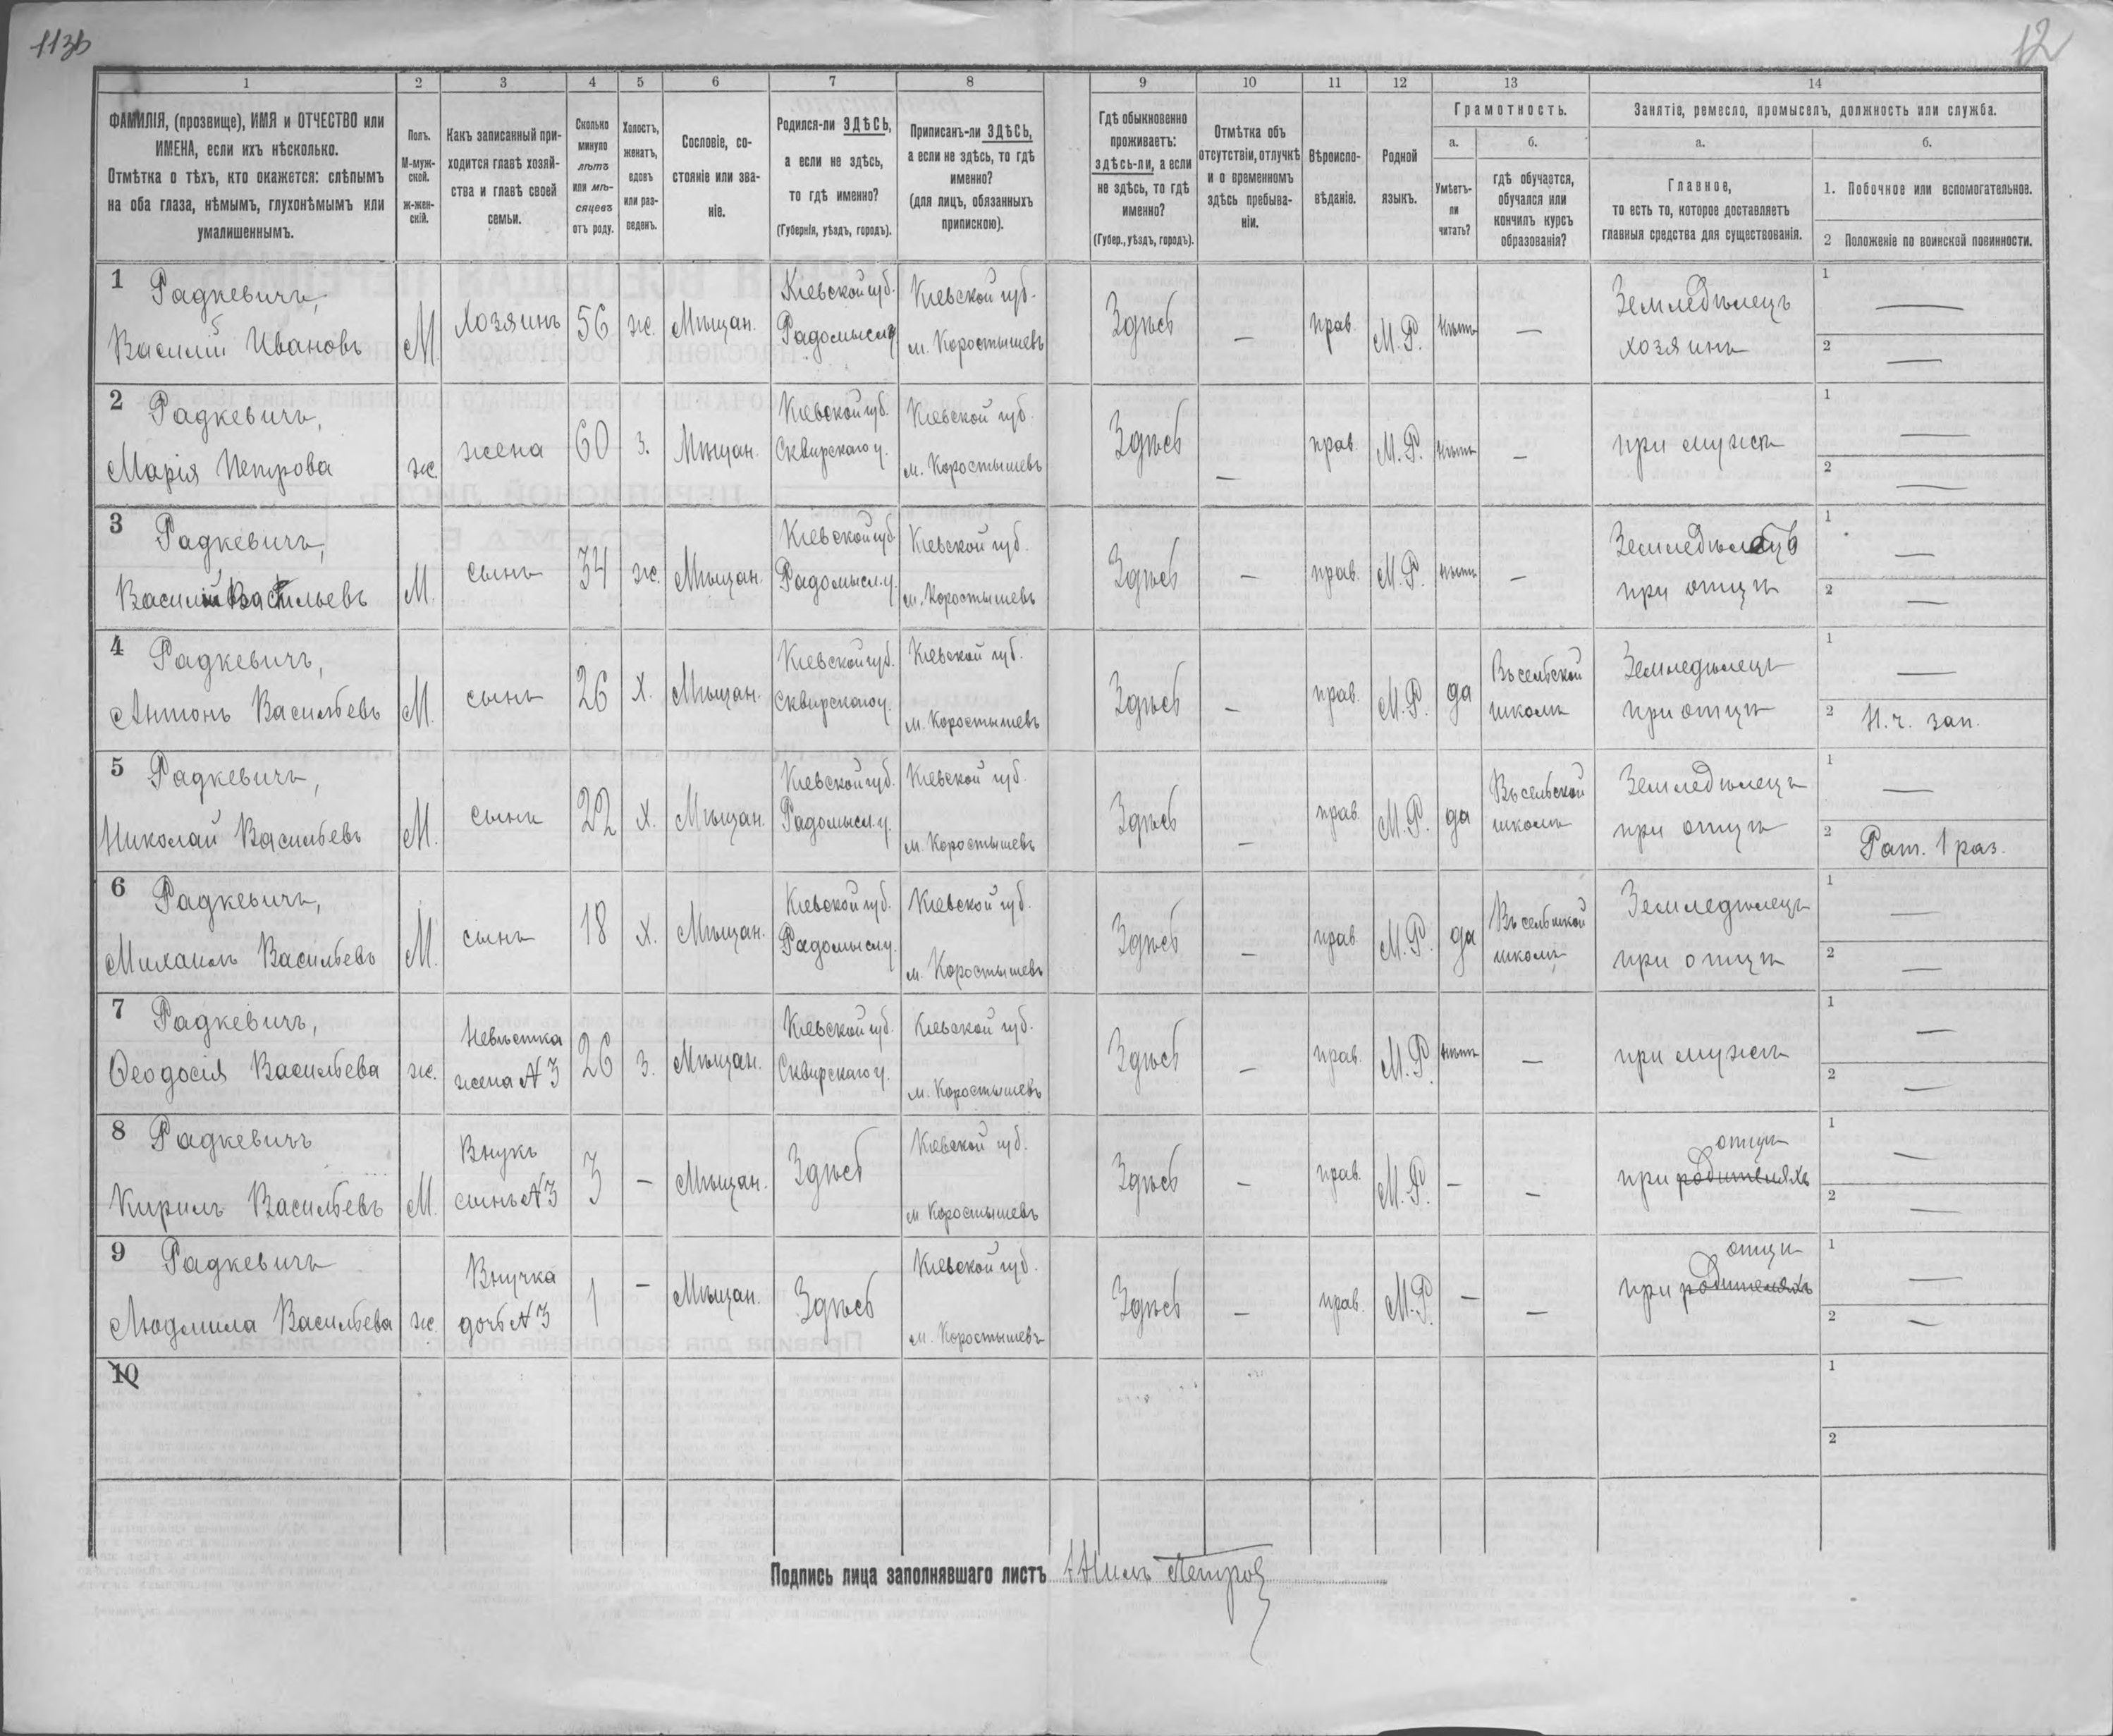 113б
12
1 2 3 4 5 6 7 8 9 10 11 12 13 14
ФАМИЛІЯ, (прозвище), ИМЯ и ОТЧЕСТВО или
ИМЕНА, если ихъ нѣсколько.
Отмѣтка о тѣхъ, кто окажется: слѣпымъ
на оба глаза, нѣмымъ, глухонѣмымъ или
умалишеннымъ.
Полъ.
М-муж-
ской.
Ж-жен-
скій.
Какъ записанный при-
ходится главѣ хозяй-
ства и главѣ своей
семьи.
Сколько
минуло
лѣтъ
или мѣ-
сяцевъ
отъ роду.
Холостъ,
женатъ,
вдовъ
или раз-
веденъ.
Сословіе, со-
стояніе или зва-
ніе.
Родился-ли ЗДѢСЬ,
а если не здѣсь,
то гдѣ именно?
(Губернія, уѣздъ, городъ).
Приписанъ-ли ЗДѢСЬ,
а если не здѣсь, то гдѣ
именно?
(для лицъ, обязанныхъ
припискою).
Гдѣ обыкновенно
проживаетъ:
здѣсь-ли, а если
не здѣсь, то гдѣ
именно?
(Губер., уѣздъ, городъ).
Отмѣтка объ
отсутствіи, отлучкѣ
и о временномъ
здѣсь пребыва-
ніи.
Вѣроиспо-
вѣданіе.
Родной
языкъ.
Грамотность.
а.
Умѣетъ-
ли
читать?
б.
гдѣ обучается,
обучался или
кончилъ курсъ
образованія?
Занятіе, ремесло, промыселъ, должность или служба.
а.
Главное,
то есть то, которое доставляетъ
главныя средства для существованія.
б.
1. Побочное или вспомогательное.
2 Положеніе по воинской повинности.
1 Радкевичъ, Кіевской губ. Кіевской губ. Земледѣлецъ 1 —
Василій Ивановъ М. Хозяинъ 56 ж. Мѣщан. Радомысл. у. м. Коростышевъ Здѣсь — прав. М.Р. нѣтъ — хозяинъ 2 —
2 Радкевичъ, Кіевской губ. Кіевской губ. 1 —
Марія Петрова ж. жена 60 з. Мѣщан. Сквирскаго у. м. Коростышевъ Здѣсь — прав. М.Р. нѣтъ — при мужѣ 2 —
3 Радкевичъ, Кіевской губ. Кіевской губ. Земледѣлецъ 1 —
Василій Васильевъ М. сынъ 34 ж. Мѣщан. Радомысл. у. м. Коростышевъ Здѣсь — прав. М.Р. нѣтъ — при отцѣ 2 —
4 Радкевичъ, Кіевской губ. Кіевской губ. Въ сельской Земледѣлецъ 1 —
Антонъ Васильевъ М. сынъ 26 х. Мѣщан. Сквирскаго у. м. Коростышевъ Здѣсь — прав. М.Р. да школѣ при отцѣ 2 Н. ч. зап.
5 Радкевичъ, Кіевской губ. Кіевской губ. Въ сельской Земледѣлецъ 1 —
Николай Васильевъ М. сынъ 22 х. Мѣщан. Радомысл. у. м. Коростышевъ Здѣсь — прав. М.Р. да школѣ при отцѣ 2 Рат. 1 раз.
6 Радкевичъ, Кіевской губ. Кіевской губ. Въ сельской Земледѣлецъ 1 —
Михаилъ Васильевъ М. сынъ 18 х. Мѣщан. Радомысл у. м. Коростышевъ Здѣсь — прав. М.Р. да школѣ при отцѣ 2 —
7 Радкевичъ, Невѣстка Кіевской губ. Кіевской губ. 1 —
Ѳеодосія Васильева ж. жена №3 26 з. Мѣщан. Сквирскаго у. м. Коростышевъ Здѣсь — прав. М.Р. нѣтъ — при мужѣ 2 —
8 Радкевичъ Внукъ Кіевской губ. отцѣ 1 —
Кирилъ Васильевъ М. сынъ №3 3 — Мѣщан. Здѣсь м Коростышевъ Здѣсь — прав. М.Р. — — при родителяхъ 2 —
9 Радкевичъ Внучка Кіевской губ. отцѣ 1 —
Людмила Васильева ж. дочь №3 1 — Мѣщан. Здѣсь м. Коростышевъ Здѣсь — прав. М.Р. — — при родителяхъ 2 —
10 1
2
Подпись лица заполнявшаго листъ